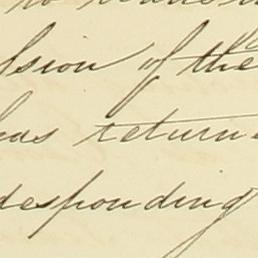 lsion of the
has return
desponding